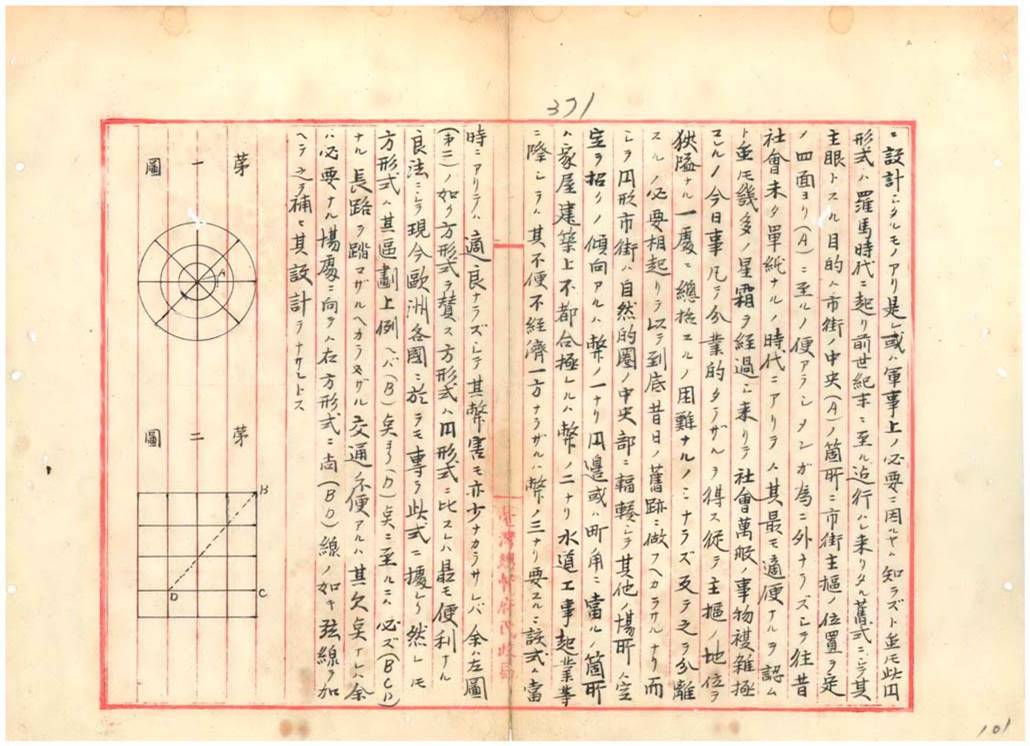 371
ニ設計ニタルモノアリ是レ或ハ軍事上ノ必要ニ因ルヤ知ラズト雖モ此円
形式ハ羅馬時代ニ起リ前世紀末ニ至ル迄行ハレ来リタル舊式ニシテ其
主眼トスル目的ハ市街ノ中央(A)ノ箇所ニ市街主樞ノ位置ヲ定
ノ四面ヨリ(A)ニ至ルノ便アラシメンガ為ニ外ナラズシテ往昔
社會未タ單純ナルノ時代ニアリテハ其最モ適便ナルヲ認ム
ト雖モ幾多ノ星霜ヲ経過シ来リテ社會萬般ノ事物複雑極
マルノ今日事凡テ分業的タラザルヲ得ス従テ主樞ノ地位ヲ
狭隘ナル一處ニ總括スルノ困難ナルノミナラズ反テ之ヲ分離
スルノ必要相起リ以テ到底昔日ノ舊跡ニ倣フヘカラサルナリ而
シテ円形市街ハ自然的圏ノ中央部ニ輻輳シテ其他ノ場所ハ空
空ヲ招クノ傾向アルハ幣ノ一ナリ円邊或ハ町角ニ當ルノ箇所
ハ家屋建築上不都合極レルハ幣ノ二ナリ水道工事起業等
ニ際シテハ其不便不経濟一方ナラザルハ幣ノ三ナリ要スルニ該式ハ當
時ニアリテハ適良ナラズシテ其幣害モ亦少ナカラサレバ余ハ左圖
(第二)ノ如ク方形式ヲ賛ス方形式ハ円形式ニ比スレハ最モ便利ナル
良法ニシテ現今歐洲各國ニ於テモ専ラ此式ニ據レリ然レモ
方形式ハ其區劃上例ヘバ(B)点ヨリ(D)点ニ至ルニハ必ズ(BCD)
ナル長路ヲ踏マザルヘカラズ 交通不便アルハ其欠点ナレハ余
ハ必要ナル場處ニ向テハ右方形式ニ尚(BD)線ノ如キ弦線ヲ加
ヘテ之ヲ補ヒ其設計ヲナサントス
第一圖
A
第二圖
B
D
C
臺灣總督府民政局
101